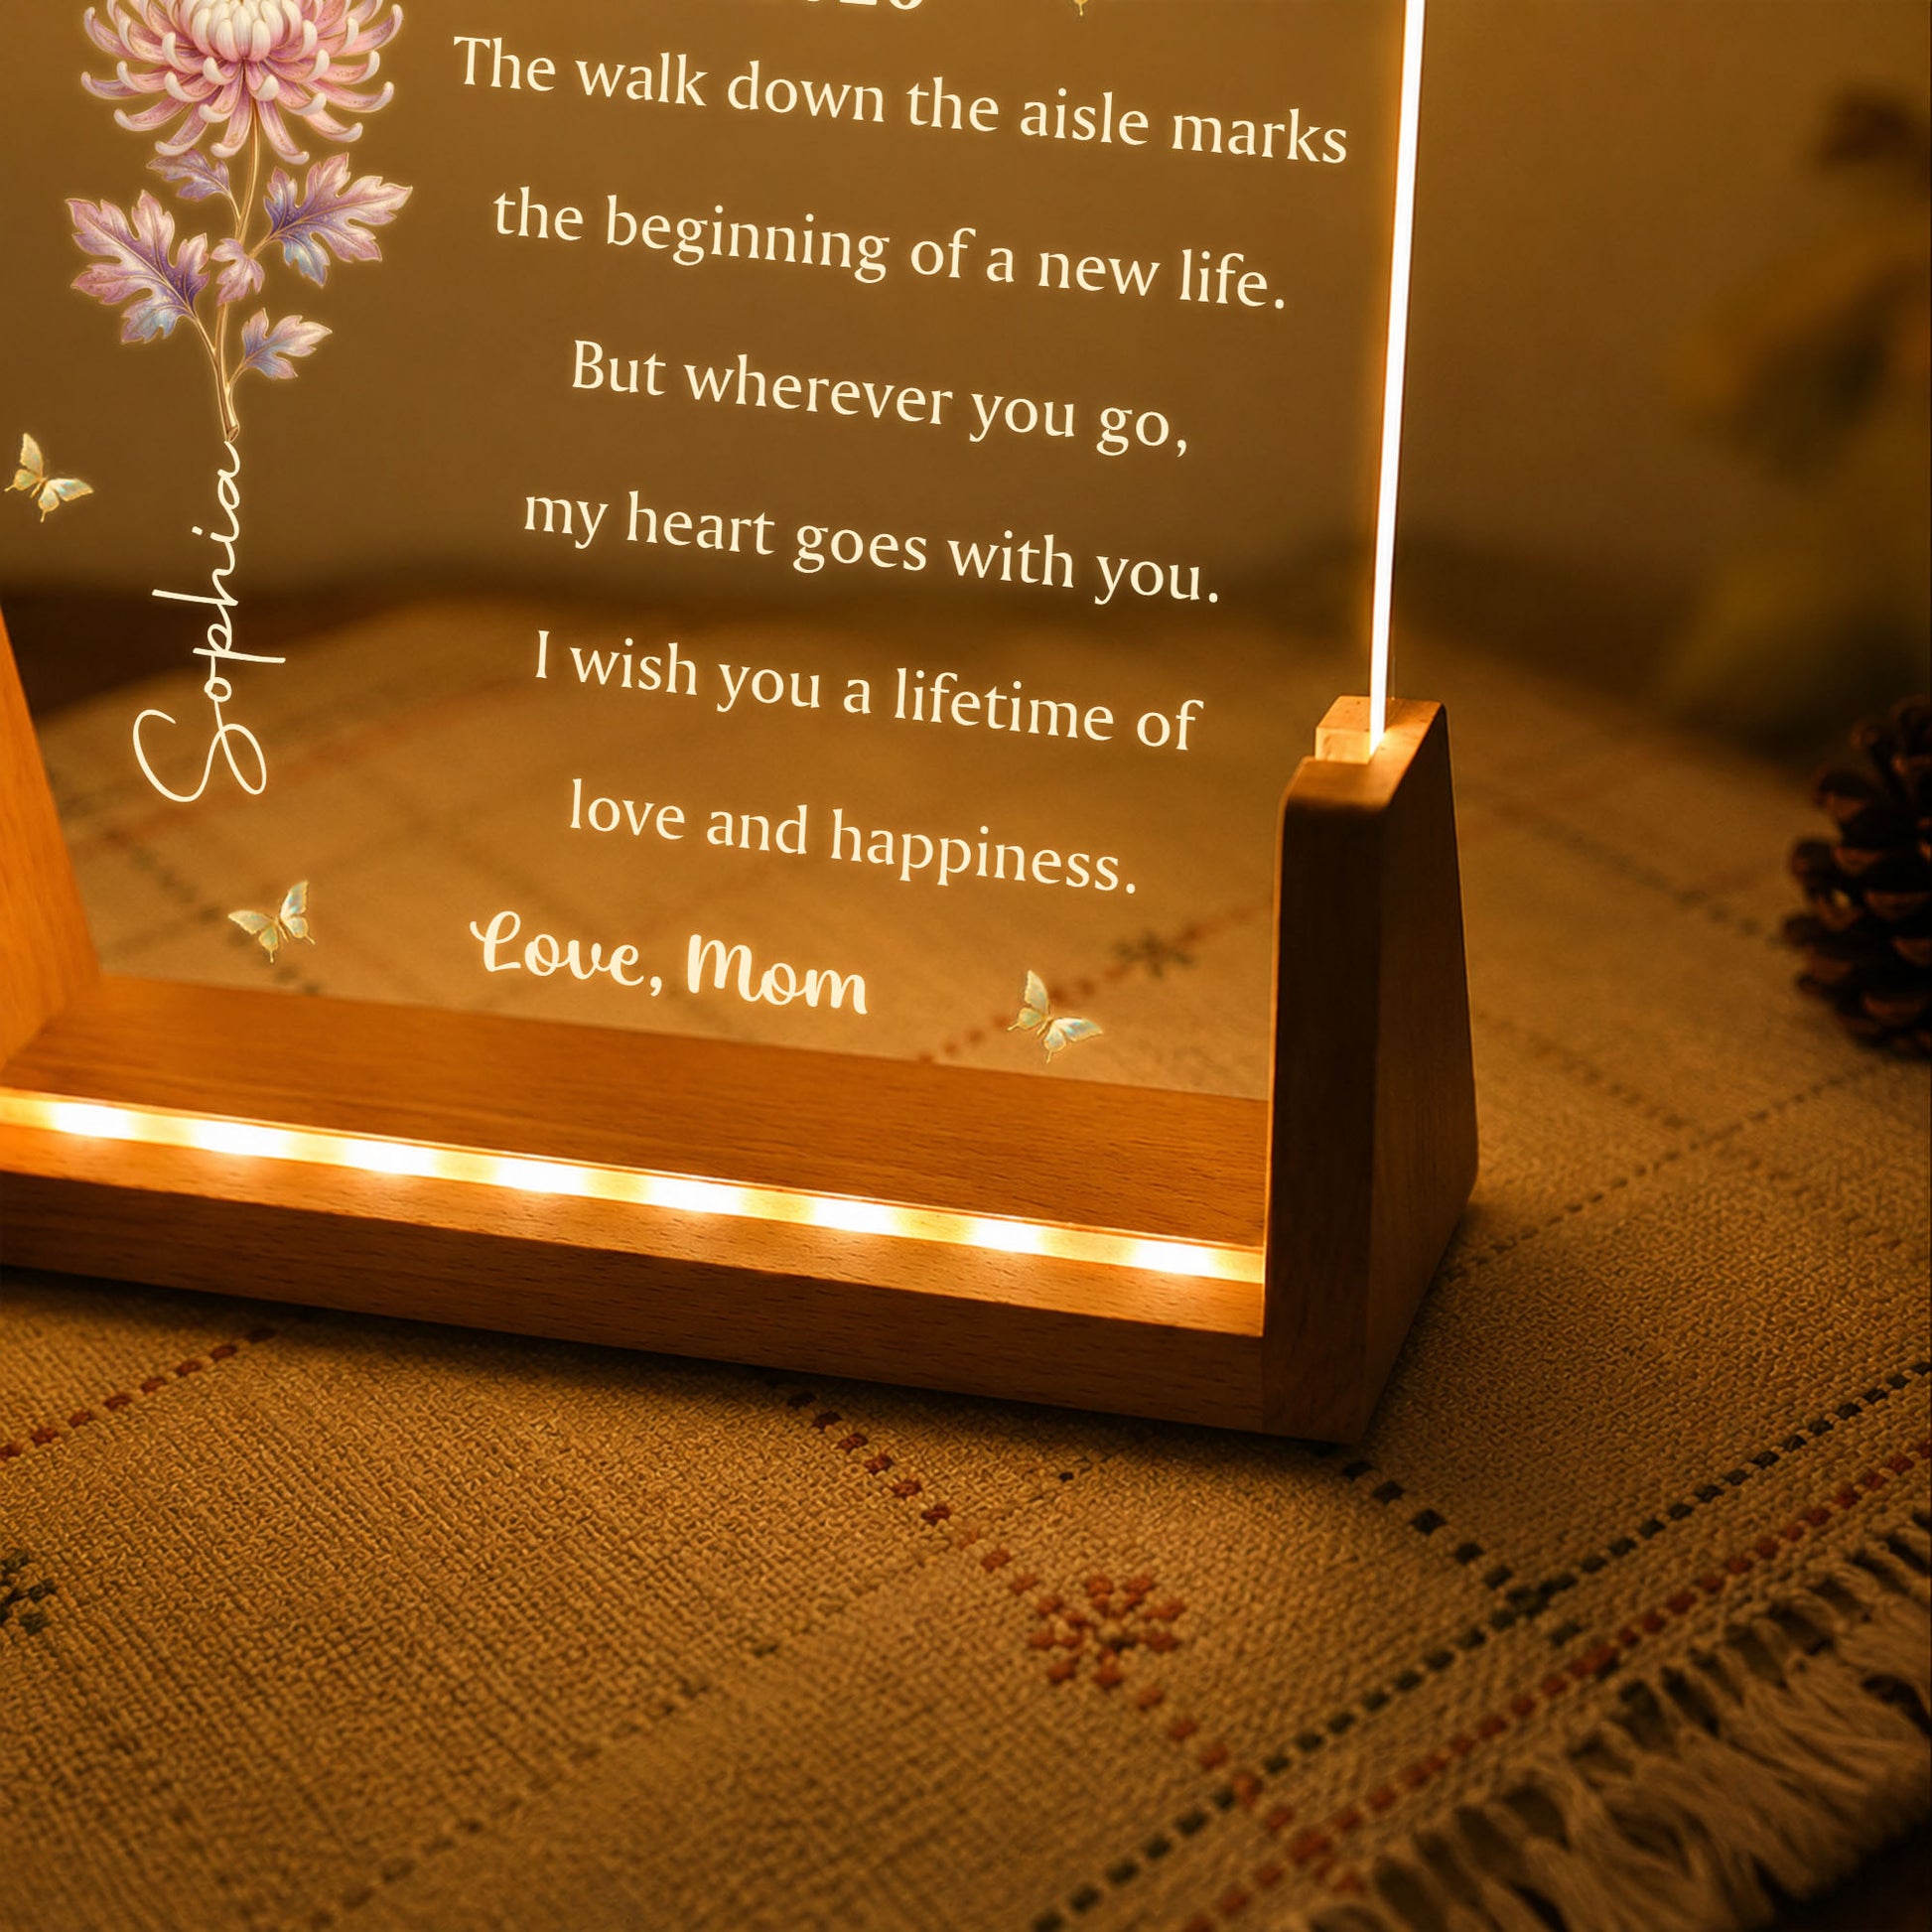 The walk down the aisle marks
the beginning of a new life.
But wherever you go,
my heart goes with you.
I wish you a lifetime of
love and happiness.
Love, Mom
Sophia